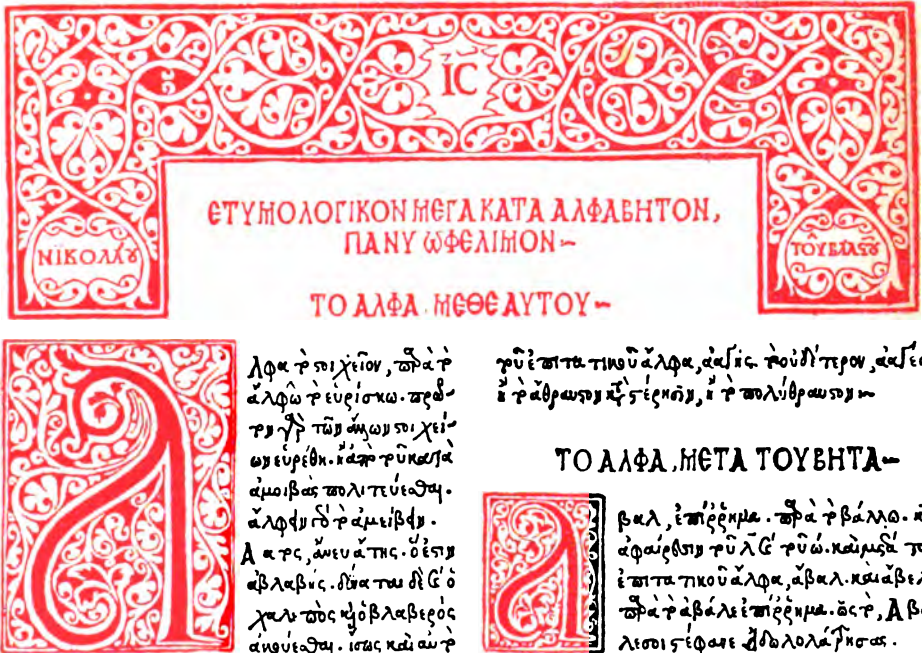 ΙC
ΝΪΚΟΛΆΟΥ
ΤΟΥ͂ΒΛΑΣΤΟΥ͂
ΕΤΥΜΟΛΟΓΙΚΟΝ ΜΕΓΑ ΚΑΤΑ ΑΛΦΑΒΗΤΟΝ,
ΠΑΝΥ ΩΦΕΛΙΜΟΝ
ΤΟ ΑΛΦΑ. ΜΕΘΕΑΥΤΟΥ
Αλφα τὸ στοιχεῖον, παρὰ τὸ
ἄλφω τὸ εὑρίσκω. πρῶ-
τον γὰρ τῶν ἄλλων στοιχεί-
ων εὑρέθη. ἢ ἀπὸ τοῦ κατὰ
ἀμοιβὰς πολιτεύεσθαι.
ἀλφεῖν τὸ ἀμείβειν.
Ἄατος, ἄνευ ἄτης. ὅ ἐστιν
ἀβλαβής. δύναται δὲ καὶ ὁ
χαλεπὸς καὶ ὁ βλαβερὸς
ἀκούεσθαι. ἴσως καὶ
τοῦ ἐπιτατικοῦ ἄλφα, ἀαγής. τὸ οὐδέτερον,
ἢ τὸ ἄθραυστον καὶ στερκὸν, ἢ τὸ πολύθραυστον
ΤΟ ΑΛΦΑ, ΜΕΤΑ ΤΟΥ ΒΗΤΑ
Αβαλ, ἐπίῤῥημα. παρὰ τὸ βάλλω.
ἀφαιρέσει τοῦ λ καὶ τοῦ ω. καὶ μετὰ
ἐπιτατικοῦ ἄλφα, ἄβαλ. καὶ
παρὰ τὸ ἀβάλε ἐπίῤῥημα. ὡς τὸ,
λεσοι στέφανε εἰδωλολατρήσας.